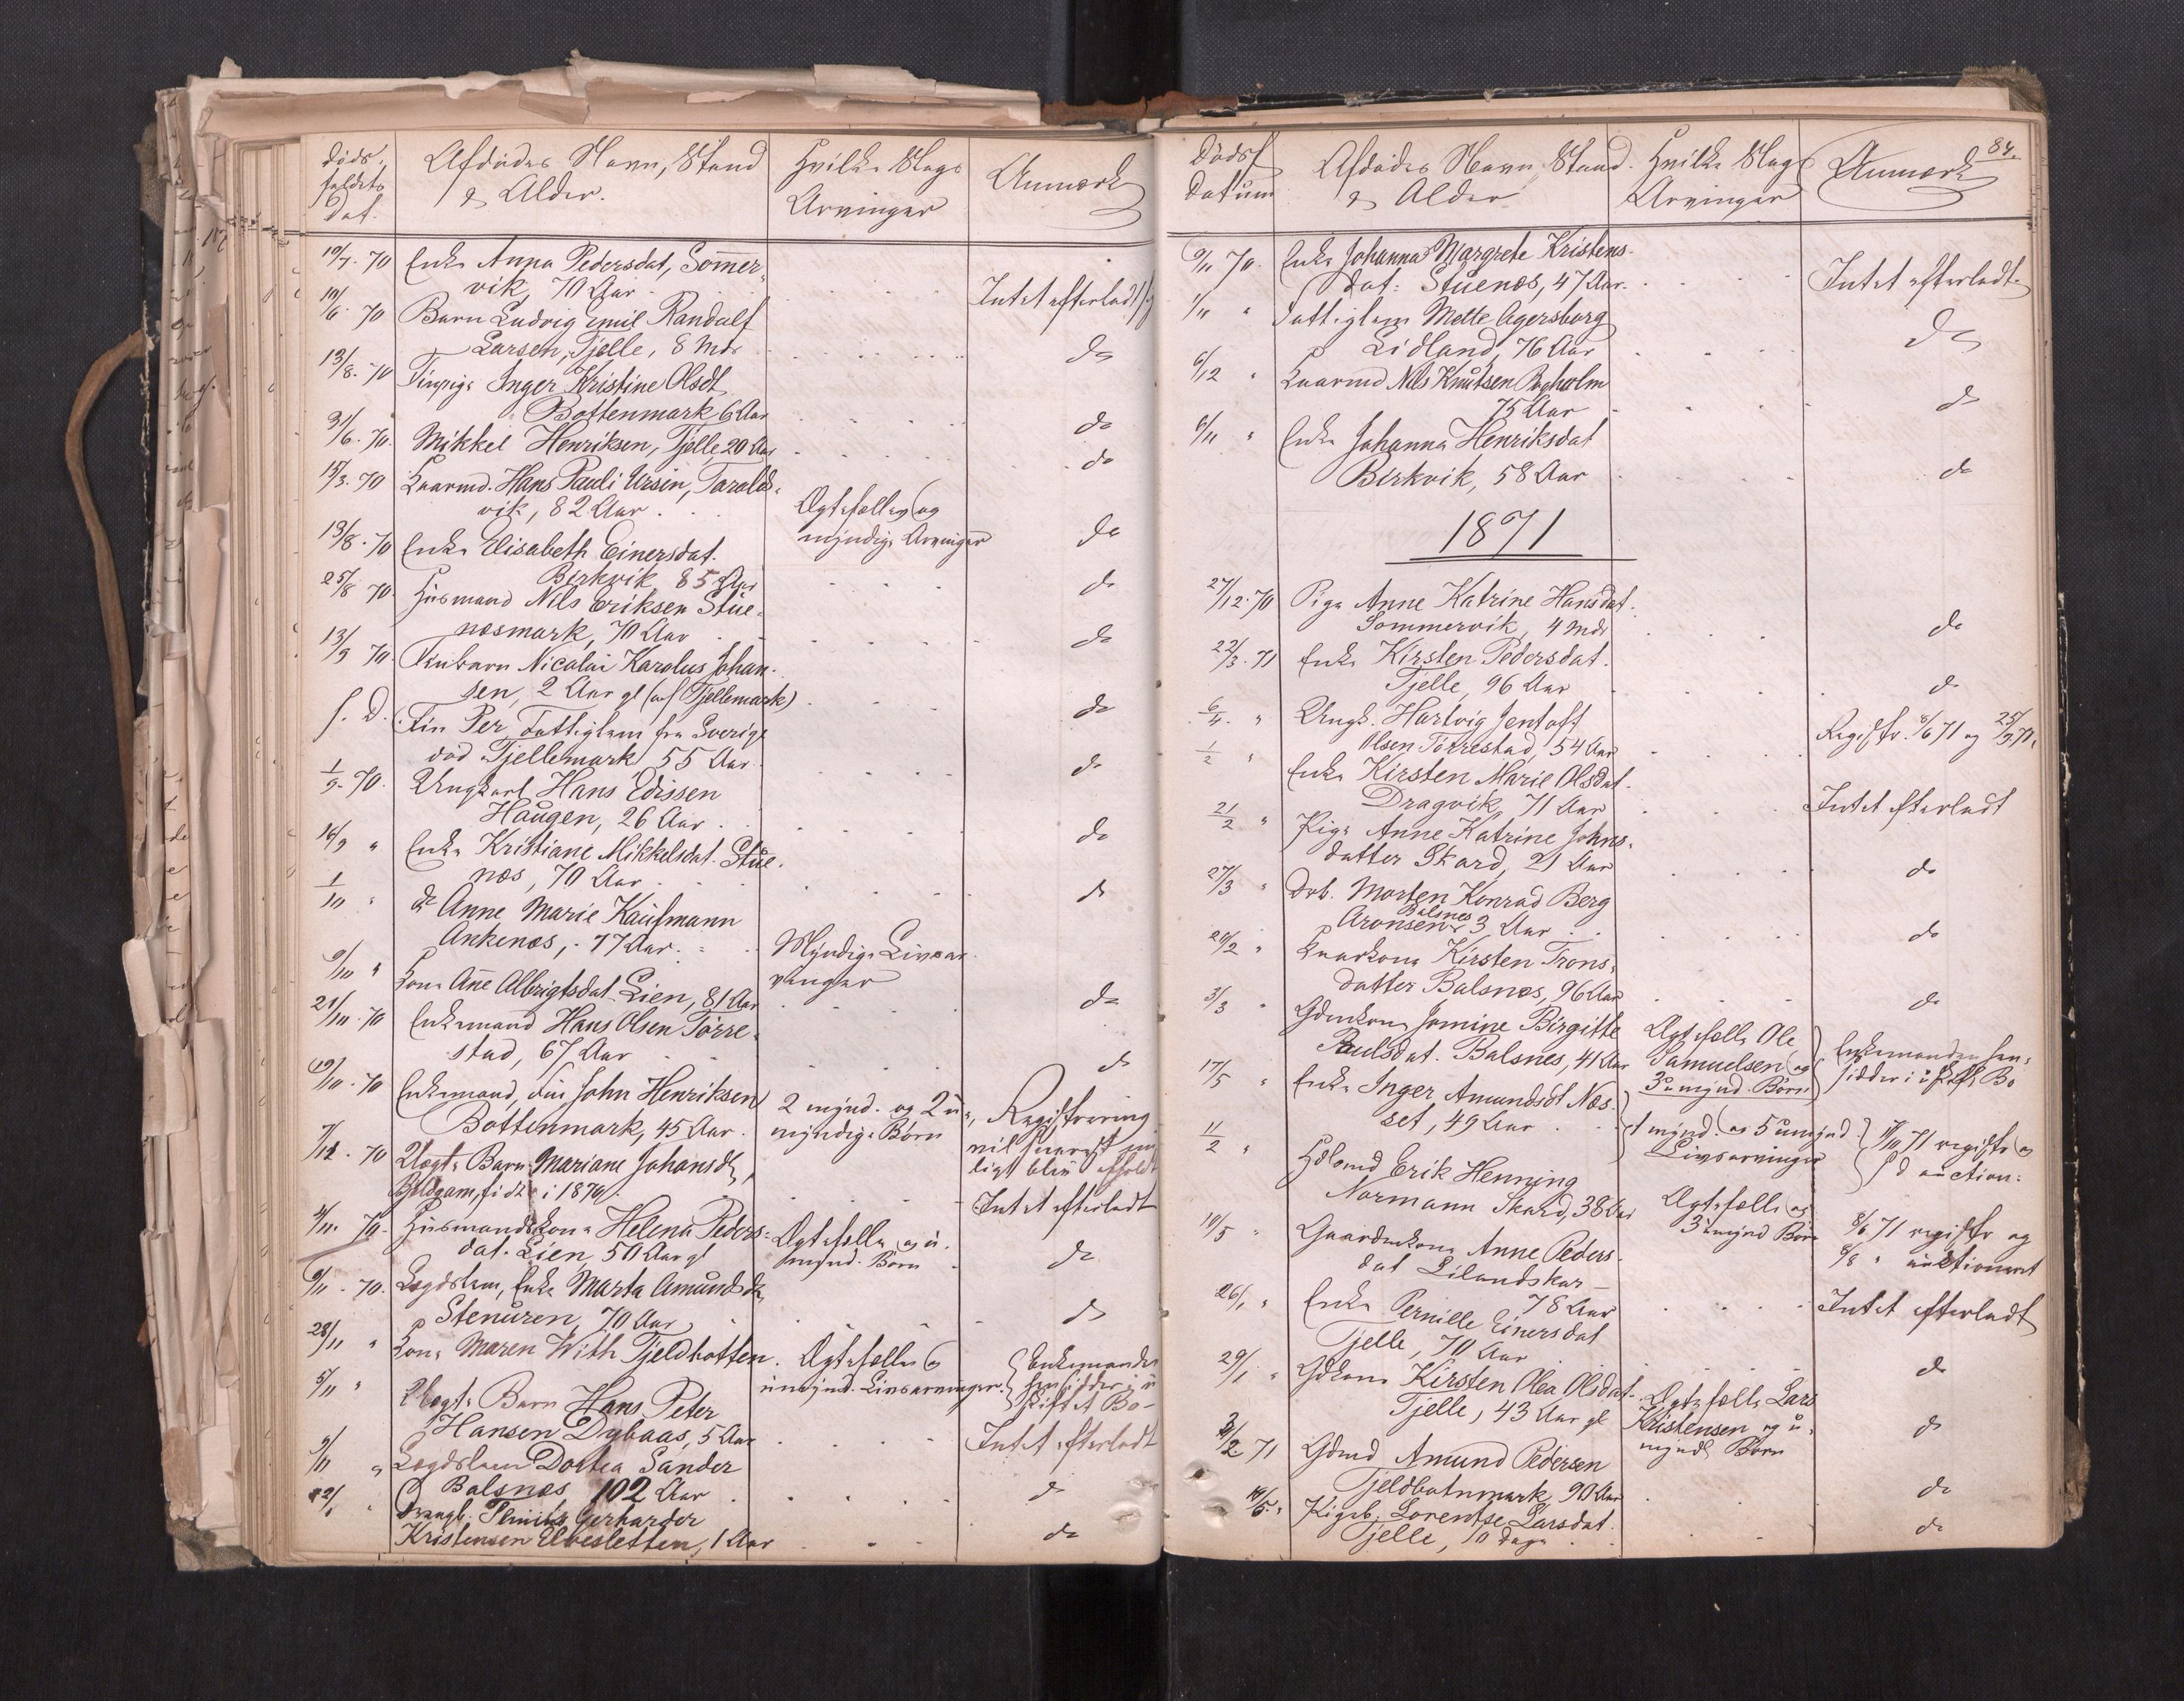 Døds-
faldets
Dat.
Afdødes Navn, Stand
& Alder.
Hvilke Slags
Arvinger
Anmærk
19/7. 70 Enke Anna Pedersdat, Somer-
vik, 70 Aar
Intet efterladt
10/6. 70 Barn Ludvig Emil Randulf
Larsen, Tjelle, 8 Mdr
do
13/8. 70 Finpige Inger Kristine Olsdt
Bottenmark 6 Aar
do
70. Mikkel Henriksen, Tjelle, 20 Aar
do
70 Kaarmd. Hans Pauli Ursin, Taralds-
vik, 82 Aar
Ægtefælle og
myndige Arvinger
do
13/8. 70 Enke Elisabeth Einersdat.
Berkvik, 85 Aar
do
25/8 70. Husmand Nils Eriksen Stue-
nosmark, 70 Aar
do
13/9 70 Finbarn Nicolai Karolus Johan-
sen, 2 Aar gl (af Tjellemark)
do
s. D. Fin Per, Fattiglem fra Sverige
død Tjellemark 55 Aar
do
1/9. 70. Ungkarl Hans Edissen
Haugen, 26 Aar
do
16/9 " Enke Kristiane Mikkelsdat. Stue-
nos, 70 Aar
do
1/10 " do Anne Marie Kaufmann
Ankenos, 77 Aar
Myndige Livsar-
vinger
9/10 " Kone Ane Albrigtsdat Lien, 81 Aar
do
21/10. 70 Enkemand Hans Olsen Torre-
stad, 67 Aar
do
19/10. 70 Enkemand, Fin John Henriksen
Bottenmark, 45 Aar
2 mynd. og 2 u-
myndige Børn
Registrering
vil snarest mu-
ligt blive afholdt
7/12. 70 Uægte Barn Mariane Johansdt,
i 1870
Intet efterladt
4/11. 70. Husmandskone Helena Peders-
dat. Lien, 50 Aar gl
Ægtefælle og u-
mynd. Børn
do
9/11. 70. Lægdslem, Enke Marta Amundsdt,
Stenuren, 70 Aar
do
28/11 " Kone Maren With Tjeldbotten.
Ægtefælle og
umynd. Livsarvinger.
Enkemanden
hensidder i u-
skiftet Bo-
5/11 " Uægte Barn Hans Peter
Hansen Dybaas, 5 Aar
Intet efterladt
9/11 " Lægdslem Dortea Sander
Balsnos 102 Aar
do
" Drengb. Gerharder
Kristensen Elvesletten, 1 Aar
do
84.
Dødsf
Datum
Afdødes Navn, Stand.
& Alder
Hvilke Slags
Arvinger
Anmærk
9/11 70. Enke Johanna Margrete Kristens-
dat: Stuenos, 47 Aar
Intet efterladt
1/11 " Fattiglem Mette Agersborg
Lidland, 76 Aar
do
6/12 " Kaarmd Nils Knutsen Bogholm
75 Aar
do
6/11 " Enke Johanna Henriksdat
Berkvik, 58 Aar
do
1871
27/12. 70 Pige Anne Katrine Hansdat.
Sommervik, 4 Mdr
do
22/3. 71 Enke Kirsten Pedersdat.
Tjelle, 96 Aar
do
6/4. " Ungk. Hartvig Jentoft
Olsen Torrestad, 54 Aar
Registr. 8/6 71 og
1/2 " Enke Kirsten Marie Olsdat.
Dragvik, 71 Aar
Intet efterladt
21/2 " Pige Anne Katrine Johns-
datter Skard, 21 Aar
do
27/3 " Drb. Morten Konrad Berg
Aronsen Balsnes 3 Aar
do
" Kaarkone Kirsten Trons-
datter Balsnos, 96 Aar
do
3/3 " Gdmkone Jomine Birgitte
Paulsdat. Balsnes, 41 Aar
Ægtefælle Ole
Samuelsen og
3 umynd. Børn
Enkemanden hen-
sidder i uskift. Bo
17/5 " Enke Inger Amundsdt Nos-
set, 49 Aar
1 mynd. og 5 umynd.
Livsarvinger
71 registr og
s d auction.
11/2 " Erik Henning
Normann Skard, 38 Aar
Ægtefælle og
3 umynd Børn
8/6 71 registr og
8/8 " auktioneret
10/5 " Gaardmkone Anne Peders-
dat Lilandskar
78 Aar
Intet efterladt
26/1 " Enke Pernille Einersdat
Tjelle, 70 Aar
do
29/1 " Gdkone Kirsten Olea Olsdat.
Tjelle, 43 Aar gl
Ægtefælle Lars
Kristensen og u-
mynd Børn
do
71 Gdmd Amund Pedersen
Tjeldbotnmark, 90 Aar
do
10/5 " Pigeb. Lorentse Larsdat.
Tjelle, 10 Dage
do